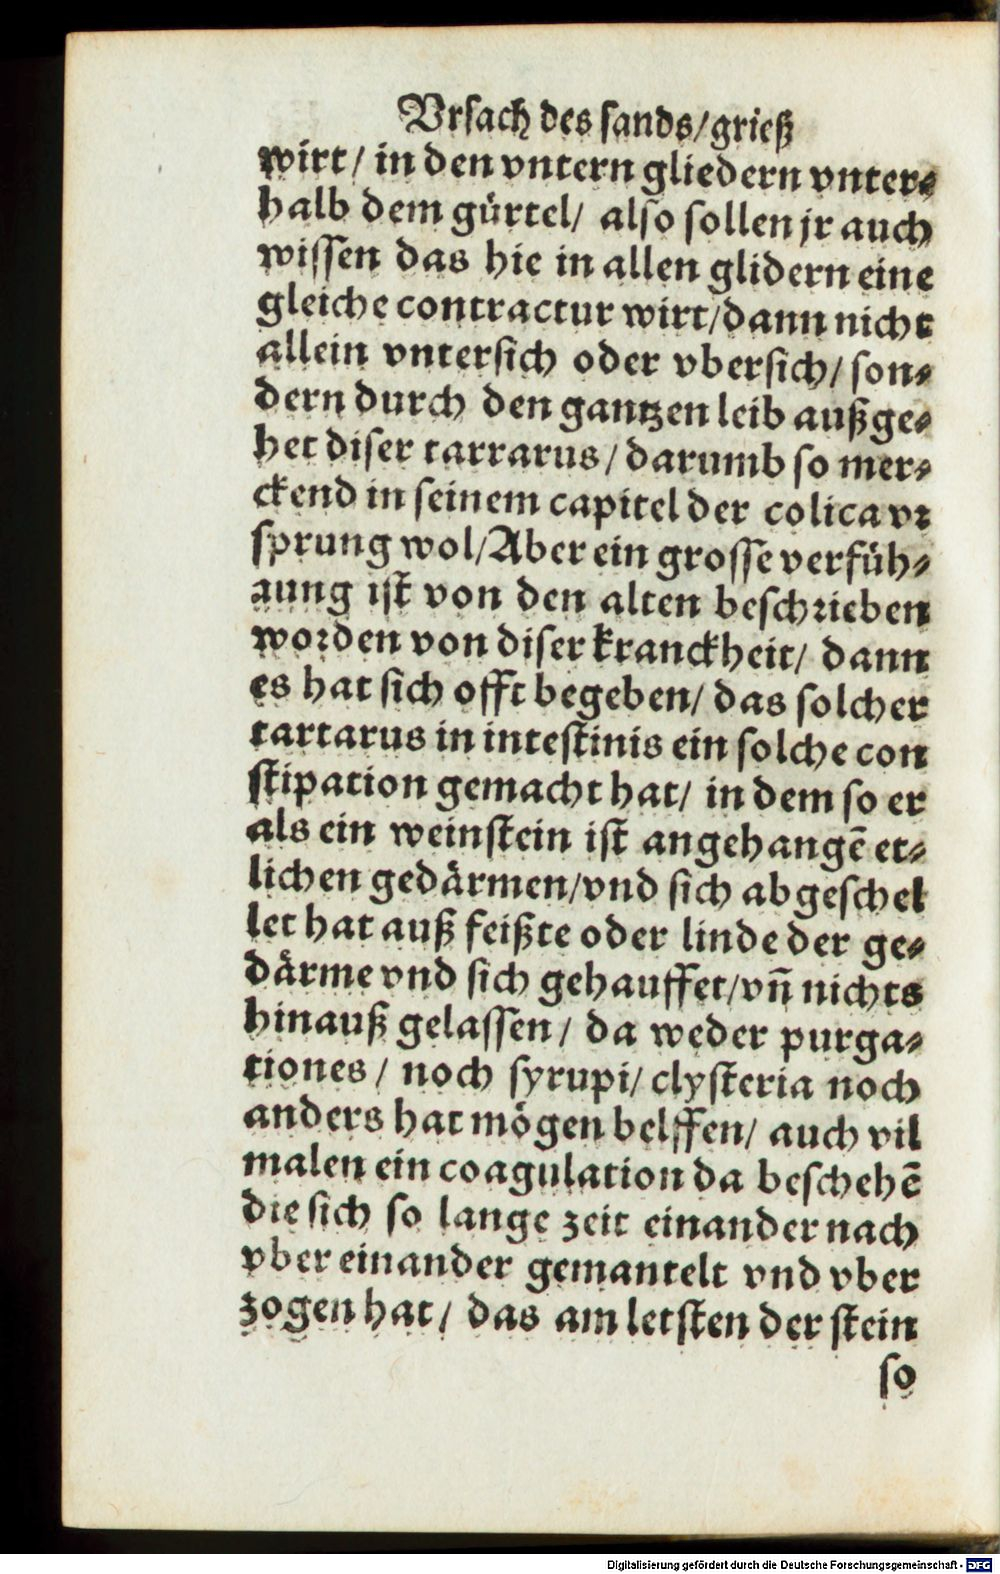 Vrsach des sands/ grieß
wirt/ in den vntern gliedern vnter-
halb dem gürtel/ also sollen jr auch
wissen das hie in allen glidern eine
gleiche contractur wirt/ dann nicht
allein vntersich oder vbersich/ son-
dern durch den gantzen leib außge-
het diser tarrarus/ darumb so mer-
ckend in seinem capitel der colica vr
sprung wol/ Aber ein grosse verfüh-
rung ist von den alten beschrieben
worden von diser kranckheit/ dann
es hat sich offt begeben/ das solcher
tartarus in intestinis ein solche con
stipation gemacht hat/ in dem so er
als ein weinstein ist angehangē et-
lichen gedärmen/ vnd sich abgeschel
let hat auß feißte oder linde der ge-
därme vnd sich gehauffet/ vñ nichts
hinauß gelassen/ da weder purga-
tiones/ noch syrupi/ clysteria noch
anders hat mögen belffen/ auch vil
malen ein coagulation da beschehē
die sich so lange zeit einander nach
vber einander gemantelt vnd vber
zogen hat/ das am letsten der stein
so
Digitalisierung gefördert durch die Deutsche Forschungsgemeinschaft - DFG